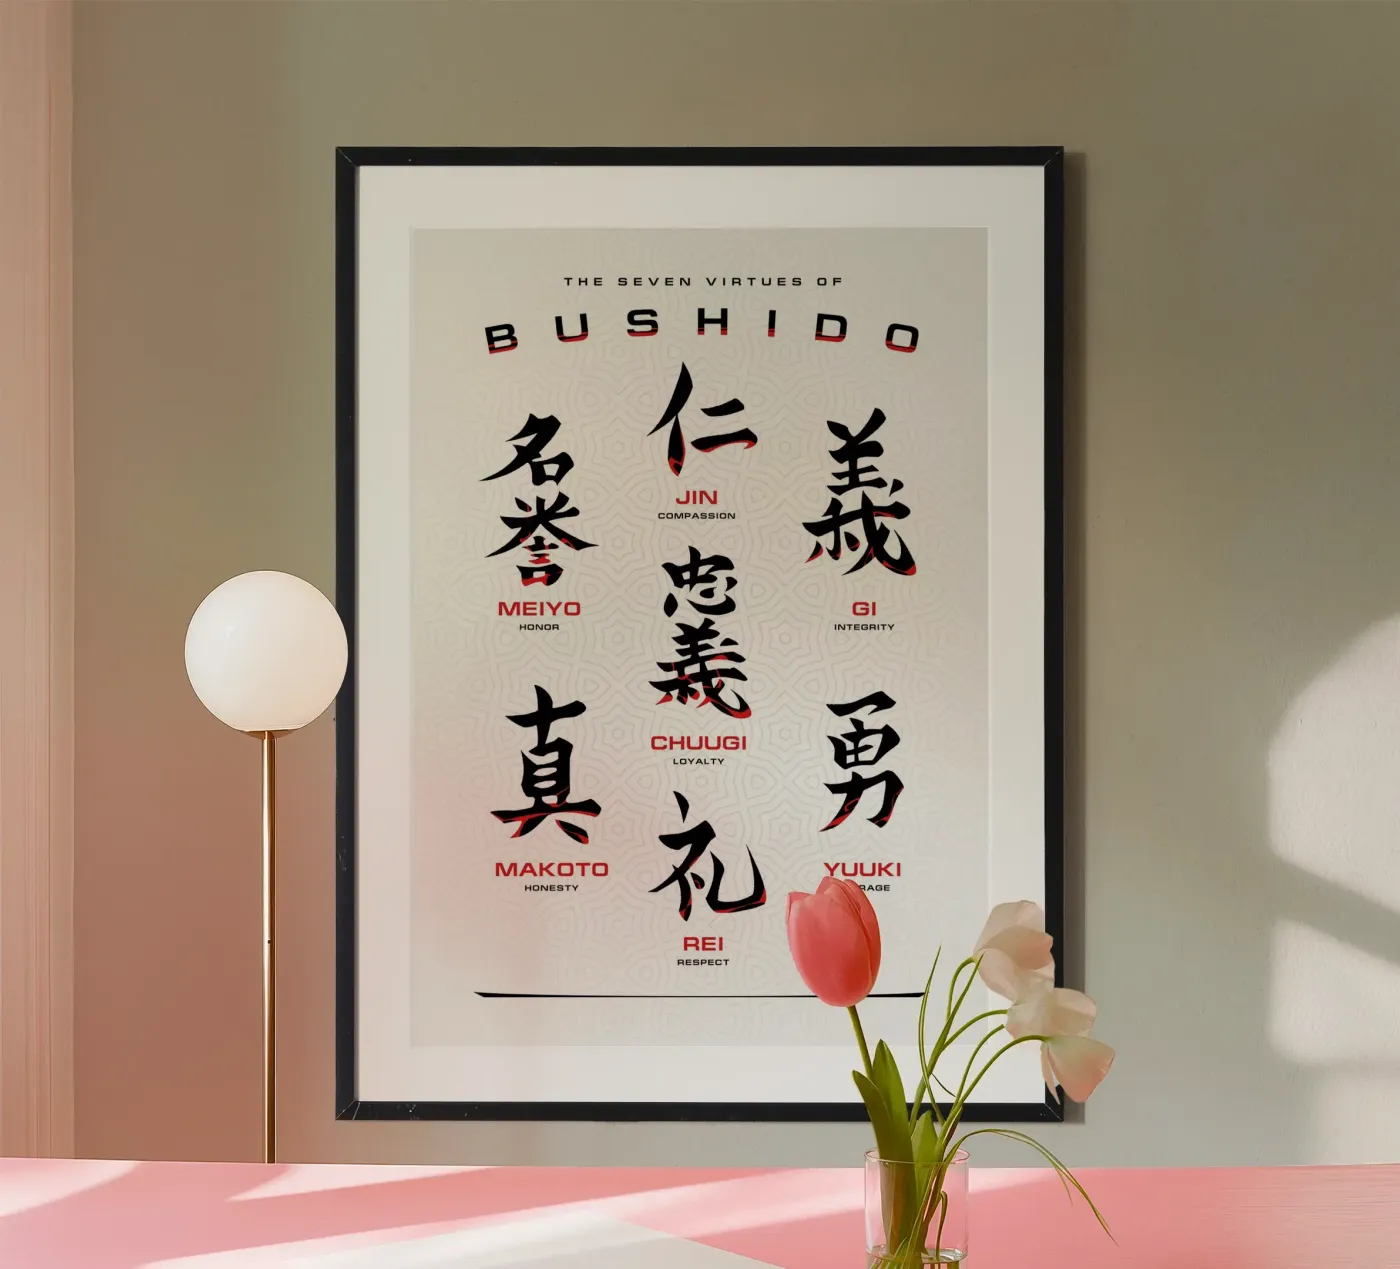 THE SEVEN VIRTUES OF
BUSHIDO
仁
JIN
COMPASSION
名
誉
MEIYO
HONOR
義
GI
INTEGRITY
忠
義
CHUUGI
LOYALTY
真
MAKOTO
HONESTY
勇
YUUKI
礼
REI
RESPECT